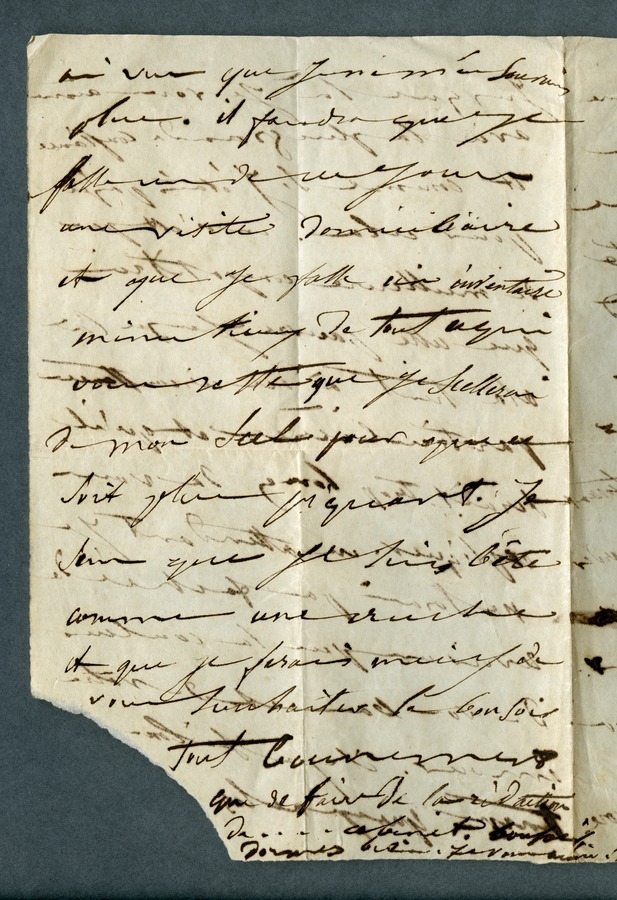 vue que je ne m'en souviens
plus. il faudra que je
fasse un de ces jours
une visite domiciliaire
et que je fasse un inventaire
minutieux de tout ce qui
vous reste que je scellerai
de mon scel pour que ce
soit plus piquant. Je
sens que je suis bête
comme une cruche
et que je ferais mieux de
vous souhaiter le bonsoir
tout bonnement
que de faire de la rédaction
de ..... cabinet.
dormez bien. je vous aime.